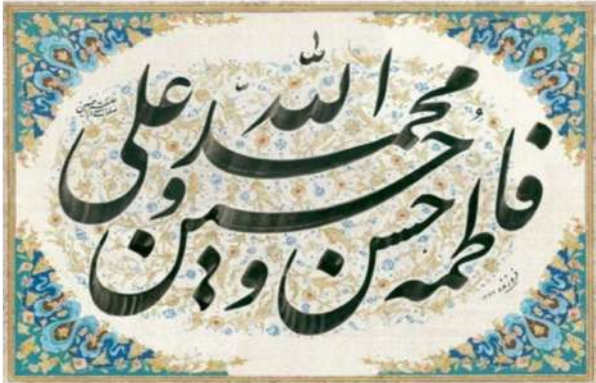 الله
محمد و علی
فاطمه حسن و حسین